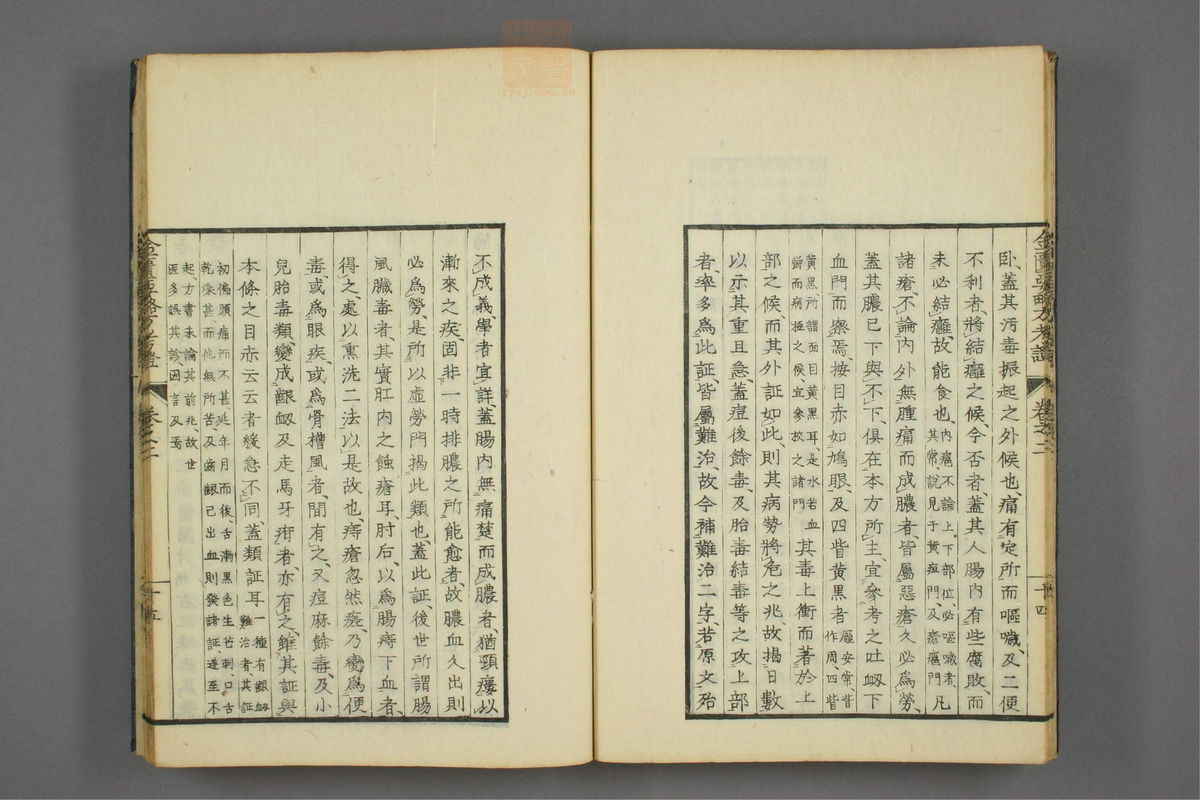 臥、蓋其汚毒振起之外候也、痛有定所而嘔噦、及二便
不利者、將結癰之候、今否者、蓋其人腸內有些腐敗、而
未必結癰、故能食也、內癰不論上下部位、必嘔噦者、其常、說見于黃疸門及瘡癰門、凡
諸瘡、不論內外、無腫痛而成膿者、皆屬惡瘡、久必爲勞、
蓋其膿已下與不下、俱在本方所主、宜參考之吐衂下
血門而案焉、按目赤如鳩眼、及四眥黃黑者、嚴安常眥作周、四眥
黃黑、所謂面目黃黑耳、是水若血鬱而病極之候、宜參攷之諸門、其毒上衝而著於上
部之候、而其外証如此、則其病勞將危之兆、故揭日數
以示其重且急、蓋痘後餘毒、及胎毒結毒等之攻上部
者、率多爲此証、皆屬難治、故今補難治二字、若原文殆
金匱要略方考證
卷之二
十四
不成義、學者宜詳、蓋腸內無痛楚而成膿者、猶頸癭以
漸來之疾、固非一時排膿之所能愈者、故膿血久出則
必爲勞、是所以虛勞門揭此類也、蓋此証、後世所謂腸
風臟毒者、其實肛內之蝕瘡耳、肘后、以爲腸痔下血者、
得之處以熏洗二法、以是故也、痔瘡忽然瘥、乃變爲便
毒、或爲眼疾、或爲骨槽風者、間有之、又痘麻餘毒、及小
兒胎毒類、變成齦衂及走馬牙疳者、亦有之、雖其証與
本條之目赤云云者緩急不同、蓋類証耳、一種有齦衂難治者、其証
初偏頭痛而不甚、延年月而後、舌漸黑色生芒刺、口舌
乾燥甚、而他無所苦、及齒齦已出血、則發諸証、遂至不
起、方書未論其前兆、故世
医多誤其診、因言及焉、
金匱要略方考證
卷之二
十五